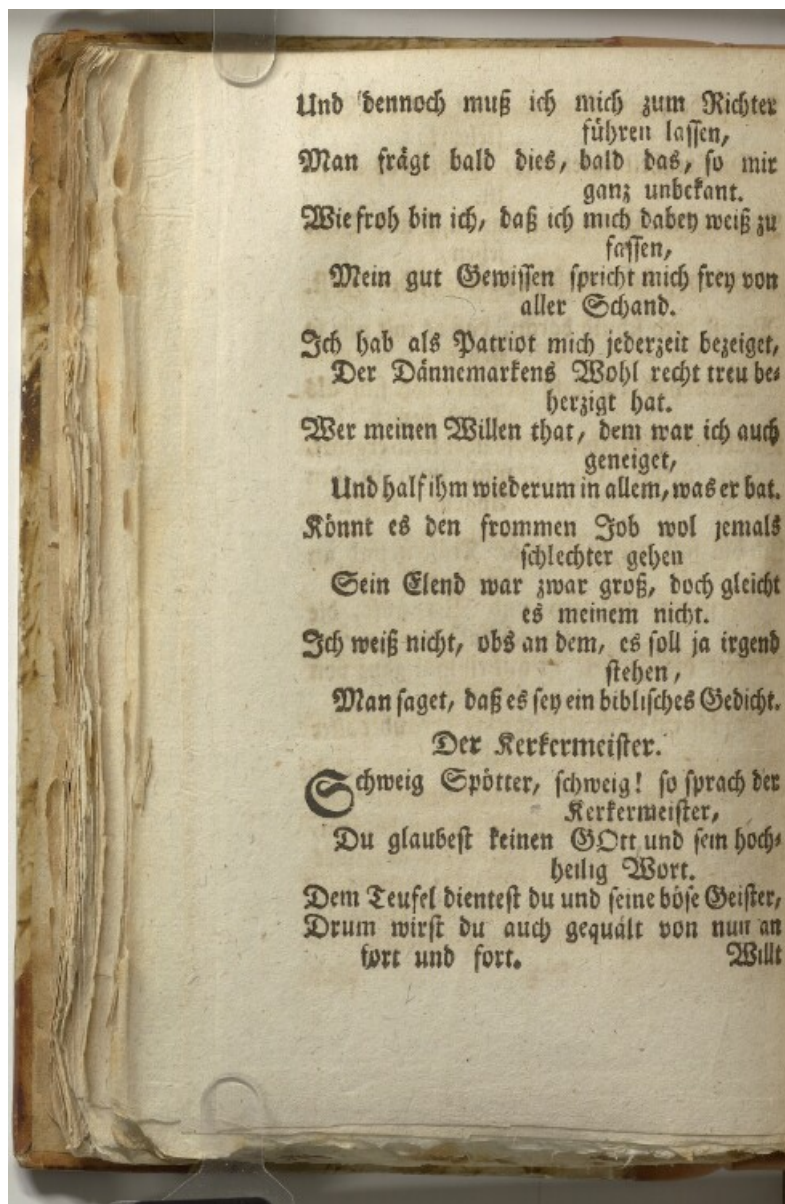 Und dennoch muß ich mich zum Richter
führen lassen,
Man frägt bald dies, bald das, so mir
ganz unbekant.
Wie froh bin ich, daß ich mich dabey weiß zu
fassen,
Mein gut Gewissen spricht mich frey von
aller Schand.
Ich hab als Patriot mich jederzeit bezeiget,
Der Dännemarkens Wohl recht treu be-
herzigt hat.
Wer meinen Willen that, dem war ich auch
geneiget,
Und half ihm wiederum in allem, was er bat.
Könnt es den frommen Job wol jemals
schlechter gehen
Sein Elend war zwar groß, doch gleicht
es meinem nicht.
Ich weiß nicht, obs an dem, es soll ja irgend
stehen,
Man saget, daß es sey ein biblisches Gedicht.
Der Kerkermeister.
Schweig Spötter, schweig! so sprach der
Kerkermeister,
Du glaubest keinen GOtt und sein hoch-
heilig Wort.
Dem Teufel dientest du und seine böse Geister,
Drum wirst du auch gequält von nun an
fort und fort. Willt